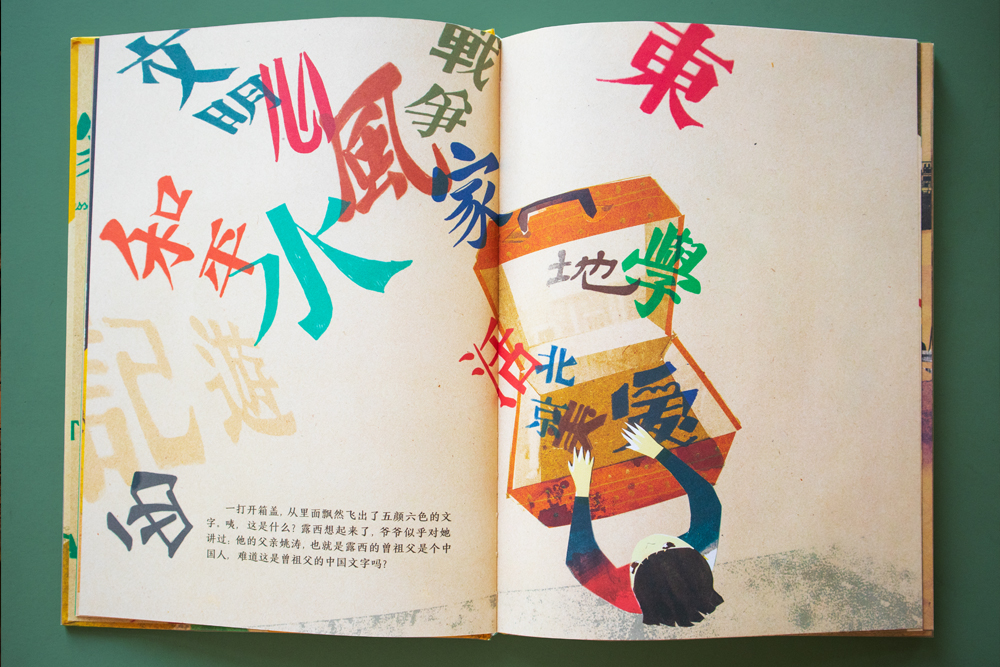 文明
心
風
戰爭
家
和平
水
東
地
學
活
北京
美
愛
一打开箱盖，从里面飘然飞出了五颜六色的文
字。咦，这是什么？露西想起来了，爷爷似乎对她
讲过：他的父亲姚涛，也就是露西的曾祖父是个中
国人。难道这是曾祖父的中国文字吗？